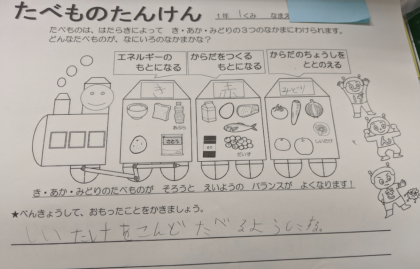 たべものたんけん
1年 1くみ なまえ
たべものは、はたらきによって き・あか・みどりの3つのなかまにわけられます。
どんなたべものが、なにいろのなかまかな?
エネルギーの
もとになる
からだをつくる
もとになる
からだのちょうしを
ととのえる
き
赤
みどり
あぶら
だいず
しいたけ
き・あか・みどりのたべものが そろうと えいようの バランスが よくなります!
★べんきょうして、おもったことをかきましょう。
しいたけをこんど たべるようにしたい